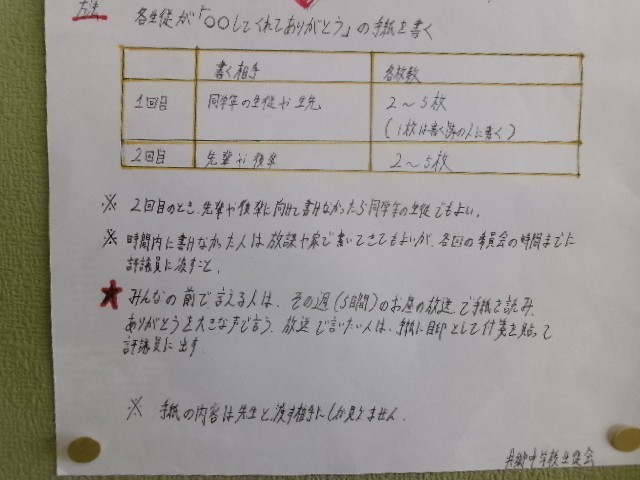 方法 各生徒が「〇〇してくれてありがとう」の手紙を書く
書く相手 各枚数
1回目 同学年の生徒や先生 2～5枚
(1枚は書く時の人に書く)
2回目 先輩や後輩 2～5枚
※ 2回目のとき、先輩や後輩に向けて書けなかったら同学年の生徒でもよい。
※ 時間内に書けなかった人は放課や家で書いてきてもよいが、各回の委員会の時間までに
評議員に渡すこと。
★ みんなの前で言える人は、その週(5日間)のお昼の放送で手紙を読み、
ありがとうを大きな声で言う。放送で言いたい人は、手紙に目印として付箋を貼って
評議員に出す
※ 手紙の内容は先生と渡す相手にしか見りません。
中学校生徒会